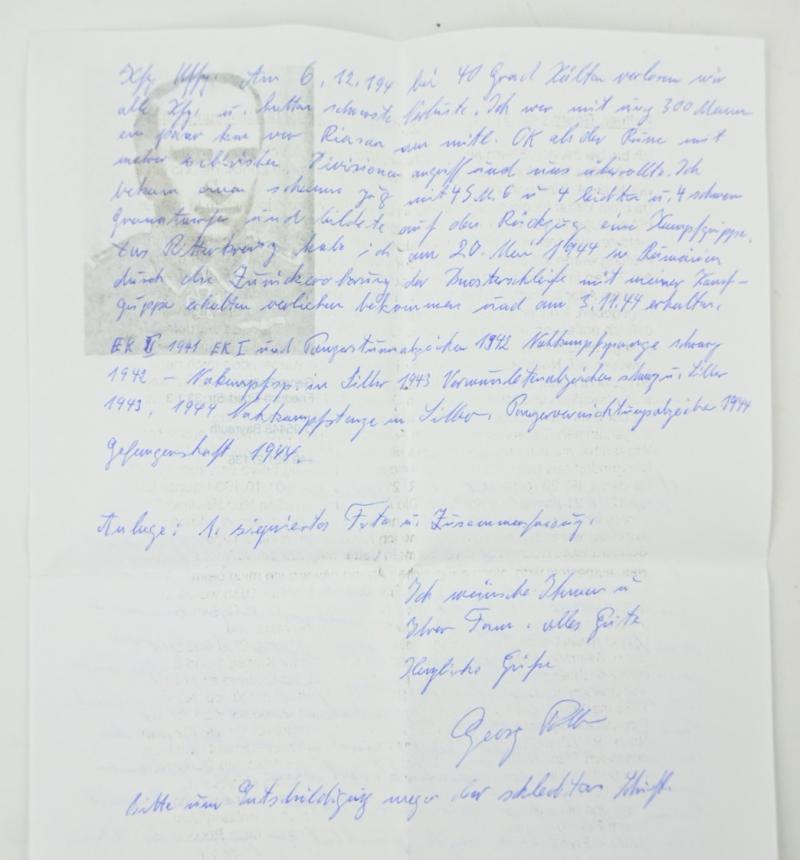 Kfz Uffz. Am 6.12.194 bei 40 Grad Kälten verloren wir
alle Kfz. u. hatten schwerste Verluste. Ich war mit ung 300 Mann
ein paar km vor Riasan am mittl. OK als der Russe mit
mehrer sibirischen Divisionen angriff und uns überrollte. Ich
bekam einen schweren Zug mit 4 S.M.G u 4 leichten u. 4 schwere
Granatwerfer und bildete auf den Rückzug eine Kampfgruppe.
Das Ritterkreuz habe ich am 20. Mai 1944 in Rumänien
durch die Zurückeroberung der Dnesterschleife mit meiner Kampf-
gruppe erhalten verliehen bekommen und am 3.11.44 erhalten.
EK II 1941 EK I und Panzersturmabzeichen 1942 Nahkampfspange schwarz
1942 – Silber 1943 Verwundetenabzeichen schwarz u. Silber
1943, 1944 Nahkampfspange in Silber. Panzervernichtungsabzeichen 1944
Gefangenschaft 1944
Anlage: 1. signiertes Foto u. Zusammenfassung.
Ich wünsche Ihnen u
Ihrer Fam. alles Gute
Herzliche Grüße
Georg
Bitte um Entschuldigung wegen der schlechten Schrift.